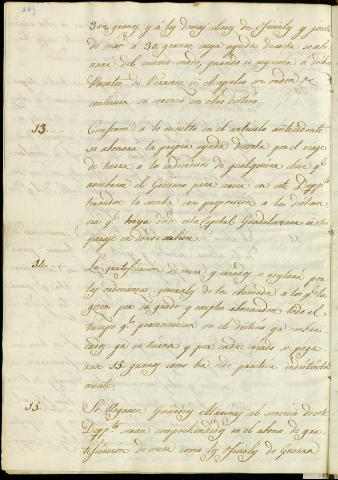 granos y a los demas
de mar á 32 granos, cuya ayuda de costa se abo
nara del mismo modo, quando se regresen a dichos
Puertos de Veracruz ó Acapulco con orden de
continuar su servicio en otro destino.
33. Conforme a lo resuelto en el articulo antecedente
se abonara la propia ayuda de costa por el viage
de tierra a los individuos de qualquiera clase qe
nombrara el Govierno para servir en este Depto
tirandose la cuenta con proporcion a las distan
cias qe haya desde esta Capital Guadalaxara ú otro
parage en donde saliere.
34. La gratificacion de mesa y criados se reglara por
las ordenanzas generales de la Armada a los qe la
gozen por su grado y empleo abonandose todo el
tiempo qe permanescan en el destino ya embar
cados ya en tierra y por cada criado se paga
ran 55 granos como ha sido practica indistinta
mente.
35. Si llegaren Guardias Marinas al servicio de este
Depto seran comprehendidos en el abono de gra
tificacion de mesa como los Oficiales de Guerra